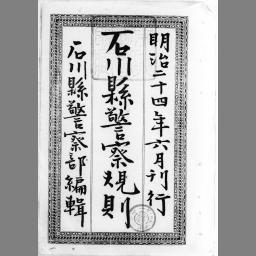 明治二十四年六月刊行
石川縣警察規則
石川縣警察部編輯